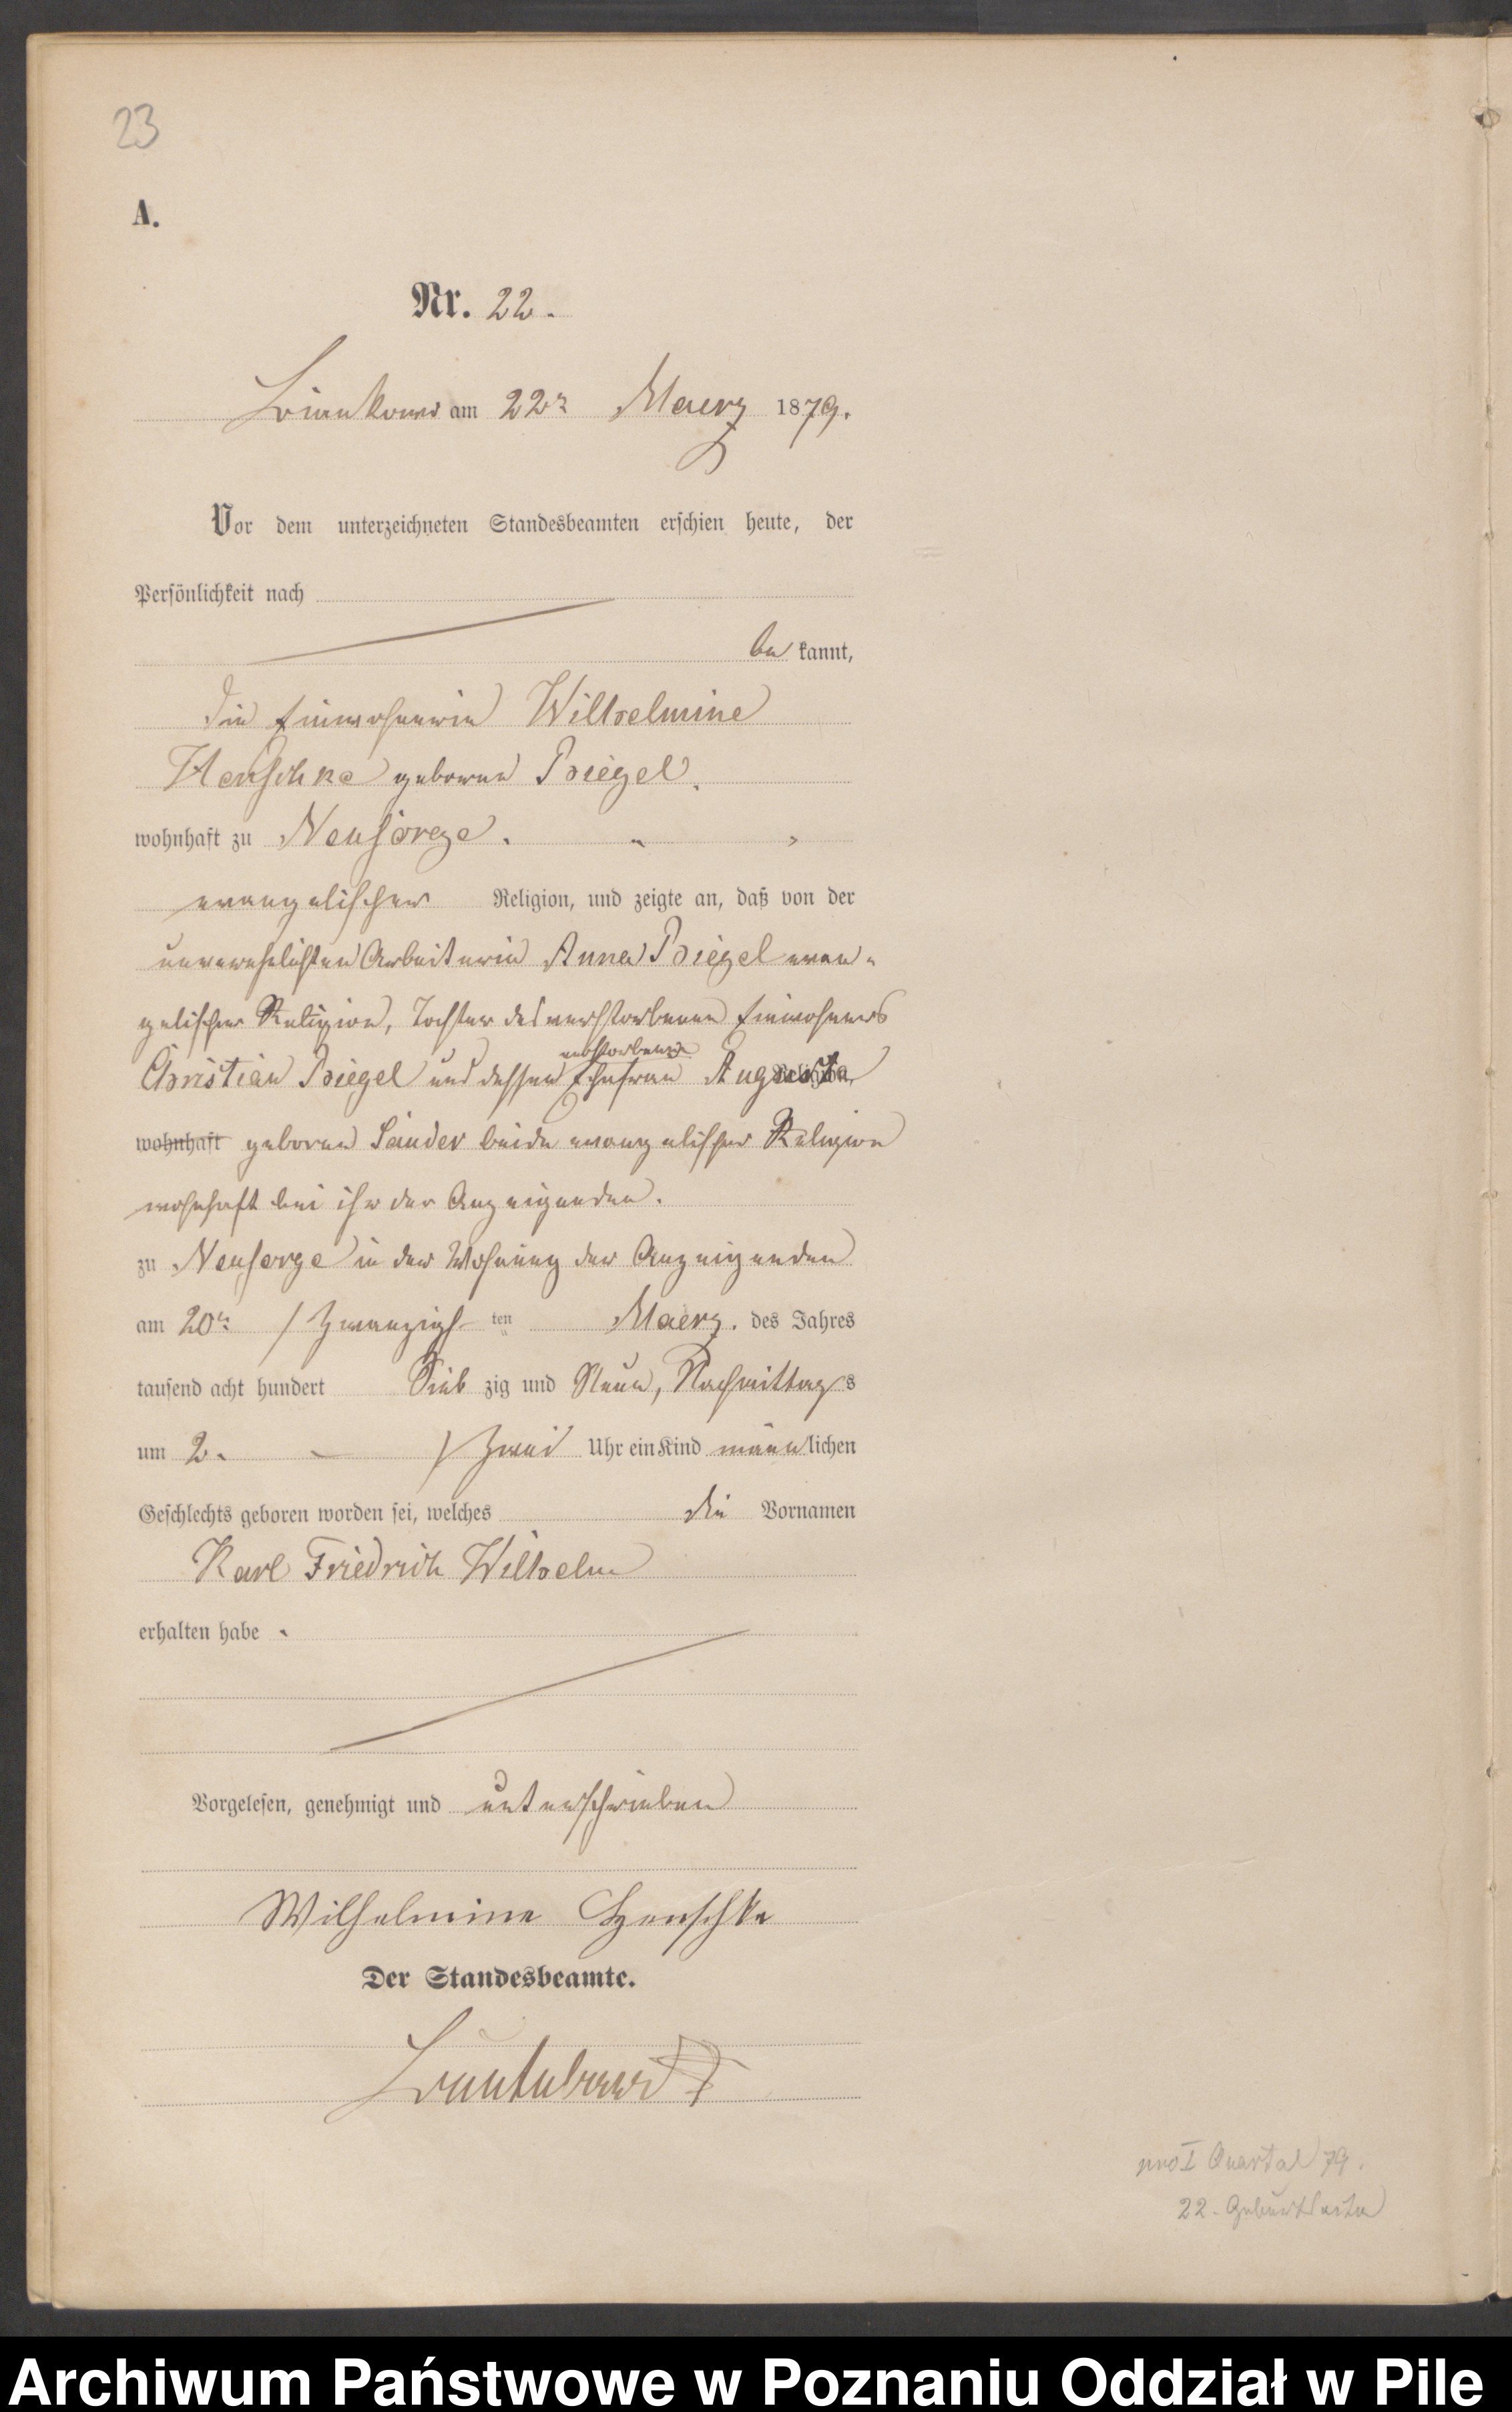 23
A.
Nr. 22.
am 22n Maerz 1879.
Vor dem unterzeichneten Standesbeamten erschien heute, der
Persönlichkeit nach
be kannt,
die Einwohnerin Wilhelmine
Henschke geborene Briegel.
wohnhaft zu Neusorge.
evangelischer Religion, und zeigte an, daß von der
unverehelichten Arbeiterin Anna Briegel evan-
gelischer Religion, Tochter des verstorbenen Einwohners
verstorbene
Christian Briegel und dessen Ehefrau Auguste
wohnhaft geborene Sander beide evangelischer Religion
wohnhaft bei ihr der Anzeigenden.
zu Neusorge in der Wohnung der Anzeigenden
am 20n / Zwanzigs ten Maerz. des Jahres
tausend acht hundert Sieb zig und Neun, Nachmittag s
um 2. / Zwei Uhr ein Kind männ lichen
Geschlechts geboren worden sei, welches die Vornamen
Karl Friedrich Wilhelm
erhalten habe.
Vorgelesen, genehmigt und unterschrieben
Wilhelmine Henschke
Der Standesbeamte.
pro I Quartal 79.
22. Geburtsacte
Archiwum Państwowe w Poznaniu Oddział w Pile